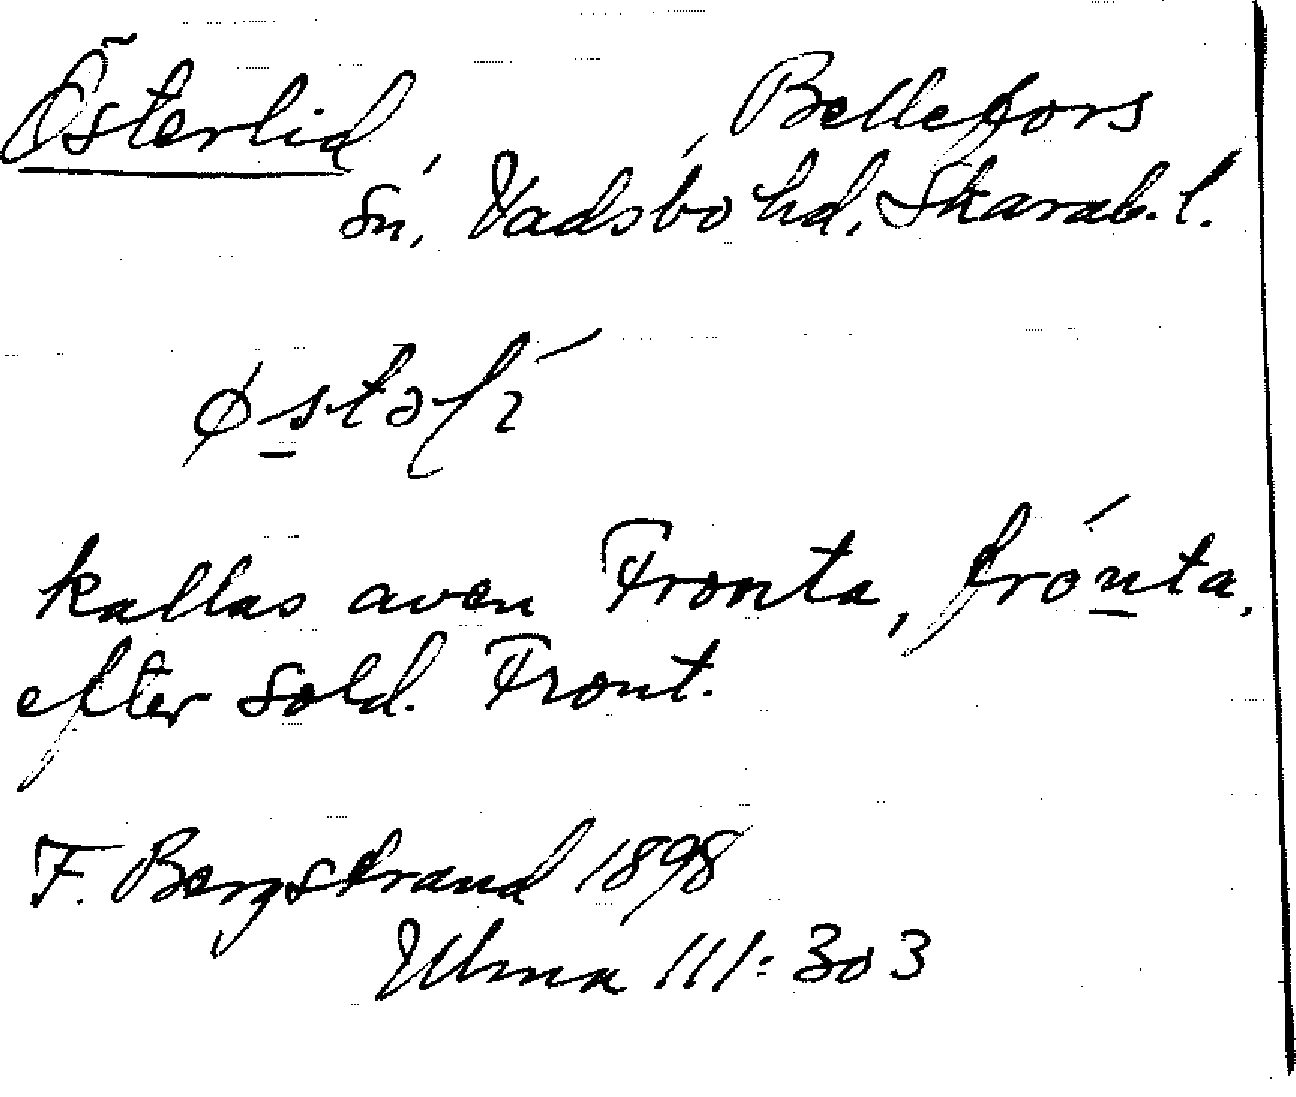 Österlid Bellefors
sn, Vadsbo hd, Skarab. l.
østəli
kallas även Fronta, frónta,
efter sold. Front.
F. Bergstrand 1898
Ulma 111:303